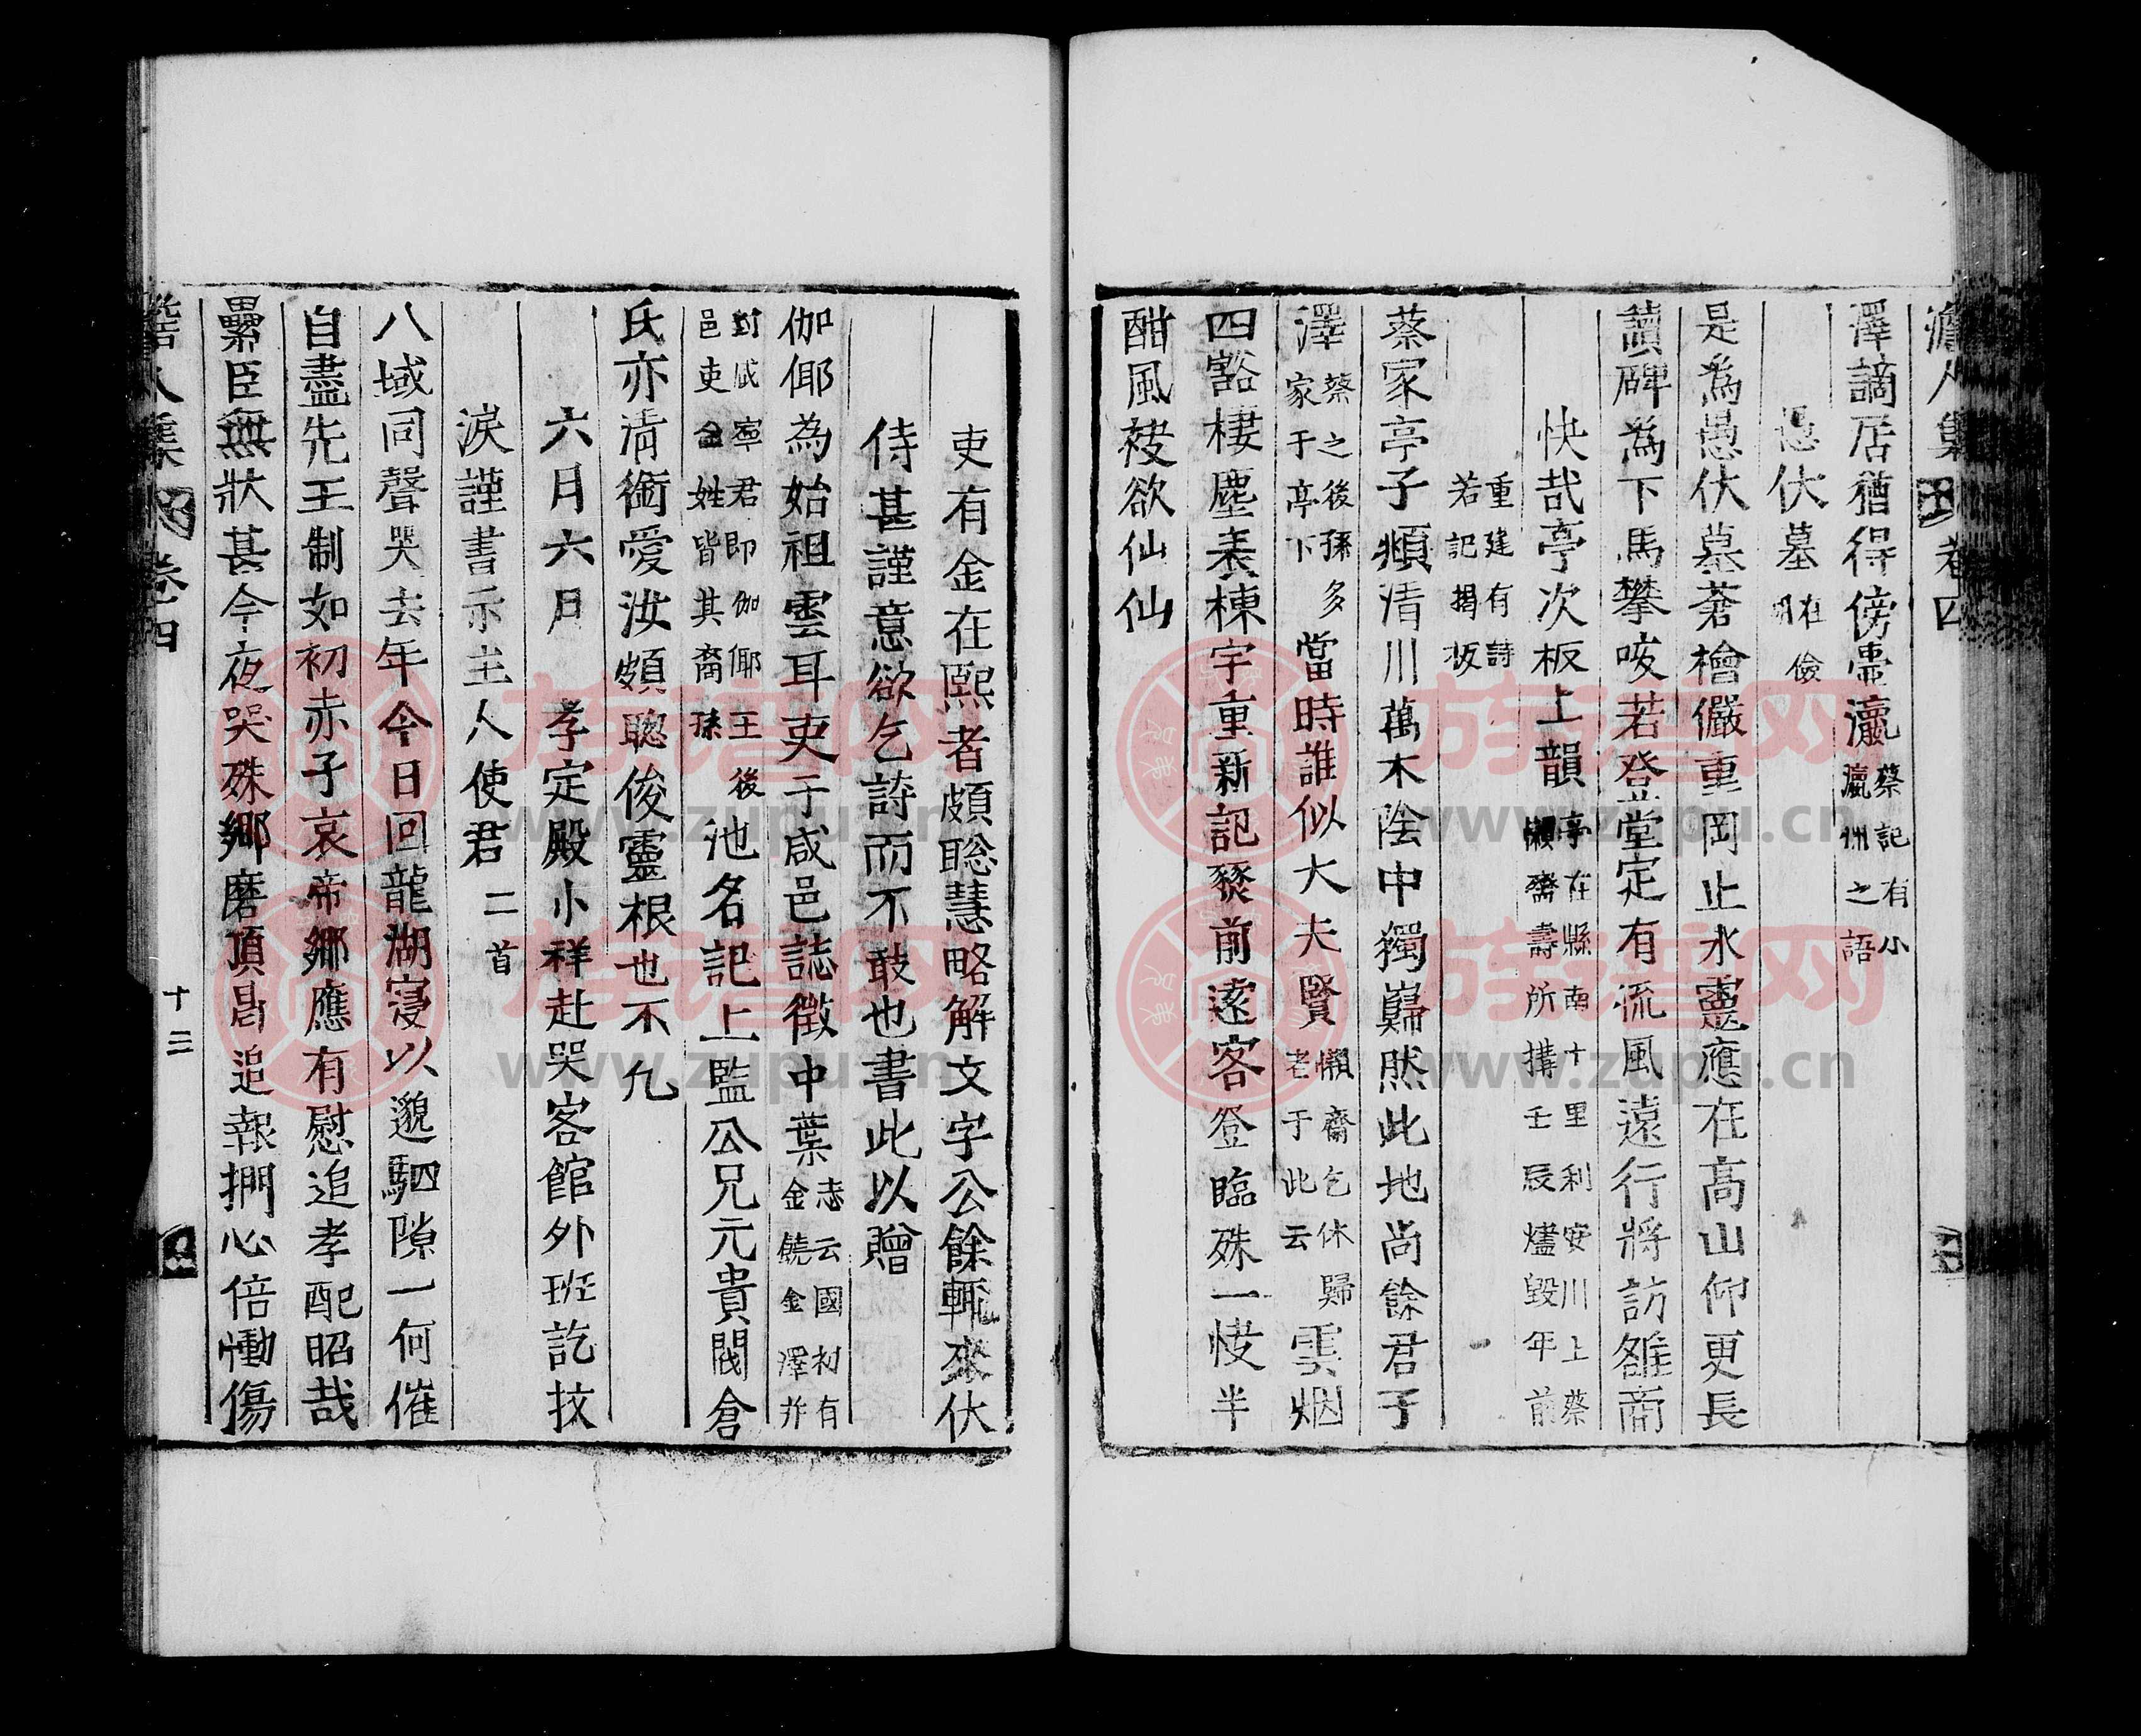 澹人集 卷四
澤謫居猶得傍壺瀛 蔡記有小瀛州之語
愚伏墓 在儉
是為愚伏墓蒼檜儼重岡止水靈應在高山仰更長
讀碑為下馬攀咳若登堂定有流風遠行將訪雒商
快哉亭次板上韻 亭在縣南十里利安川上蔡懶齋壽所搆壬辰燼毀年前
重建有詩若記揭板
蔡家亭子頫清川萬木陰中獨巋然此地尚餘君子
澤 蔡之後孫多家于亭下 當時誰似大夫賢 懶齋乞休歸老于此云 雲烟
四豁棲塵表棟宇重新記豩前遠客登臨殊一快半
酣風袂欲仙仙
吏有金在熙者頗聡慧略解文字公餘輒來伏
侍甚謹意欲乞詩而不敢也書此以贈
伽倻為始祖雲耳吏于咸邑誌徵中葉 志云國初有金饒金澤並
封咸寧君即伽倻王後邑吏金姓皆其裔孫 池名記上監公兄元貴閥倉
氏亦清銜愛汝頗聰俊靈根也不凢
六月六日 孝定殿小祥赴哭客館外班訖抆
淚謹書示主人使君 二首
八域同聲哭去年今日回龍湖寖以邈駟隙一何催
自盡先王制如初赤子哀帝鄉應有慰追孝配昭哉
纍臣無狀甚今夜哭殊鄉磨頂曷追報捫心倍慟傷
澹人集 卷四
十三
族谱网
www.zupu.cn
族谱网
www.zupu.cn
族谱网
www.zupu.cn
族谱网
www.zupu.cn